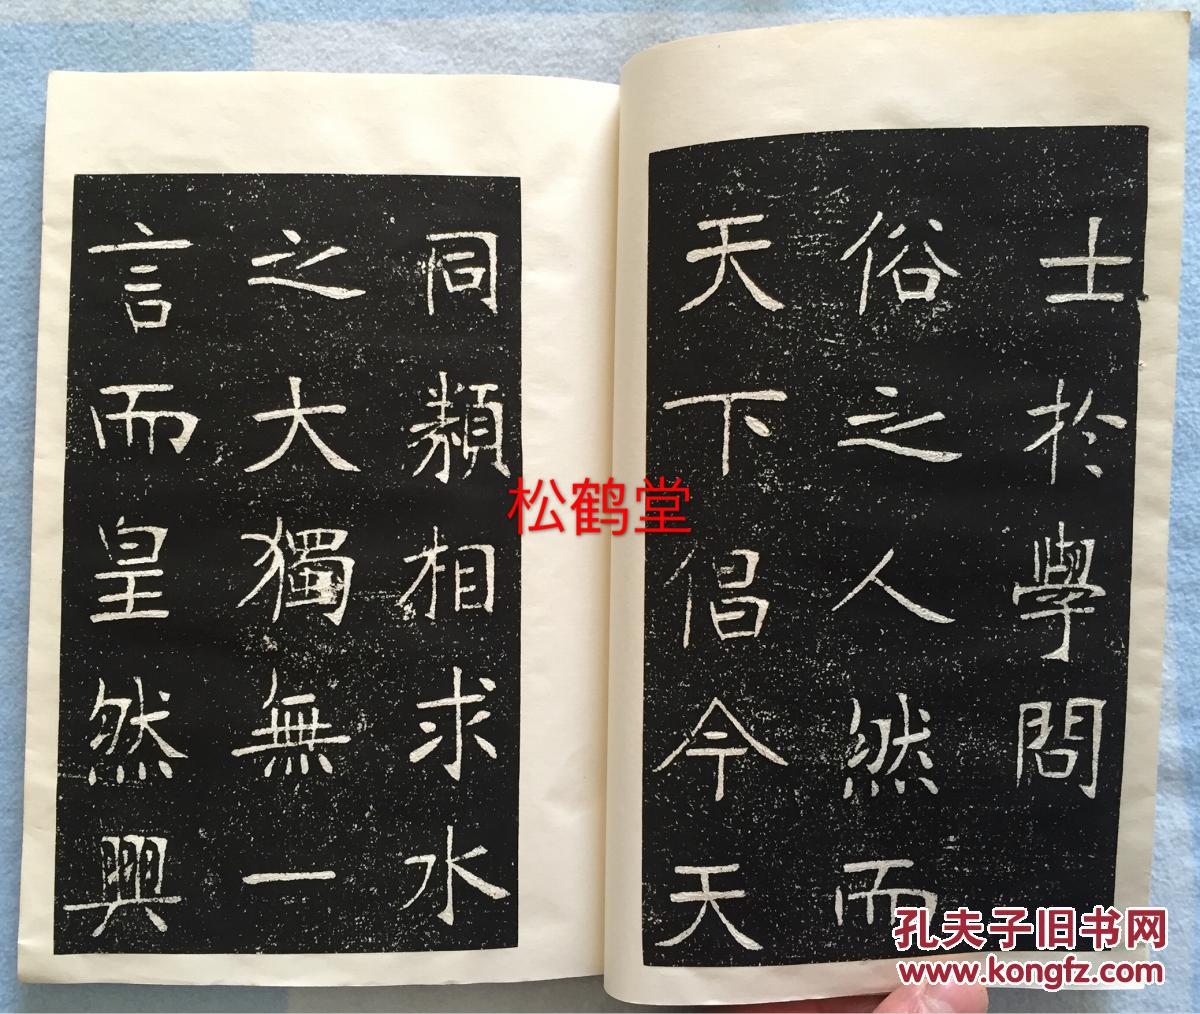 士於學問
俗之人然而
天下倡今天
同類相求水
之大獨無一
言而皇然興
松鹤堂
孔夫子旧书网
www.kongfz.com